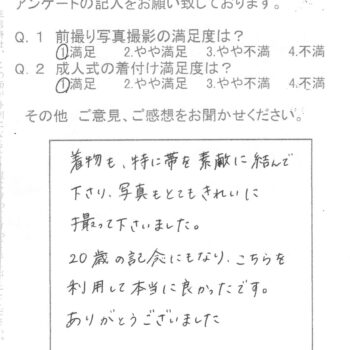 アンケートの記入をお願い致しております。
Q.1 前撮り写真撮影の満足度は？
①満足 2.やや満足 3.やや不満 4.不満
Q.2 成人式の着付け満足度は？
①満足 2.やや満足 3.やや不満 4.不満
その他 ご意見、ご感想をお聞かせください。
着物も、特に帯を素敵に結んで
下さり、写真もとてもきれいに
撮って下さいました。
20歳の記念にもなり、こちらを
利用して本当に良かったです。
ありがとうございました